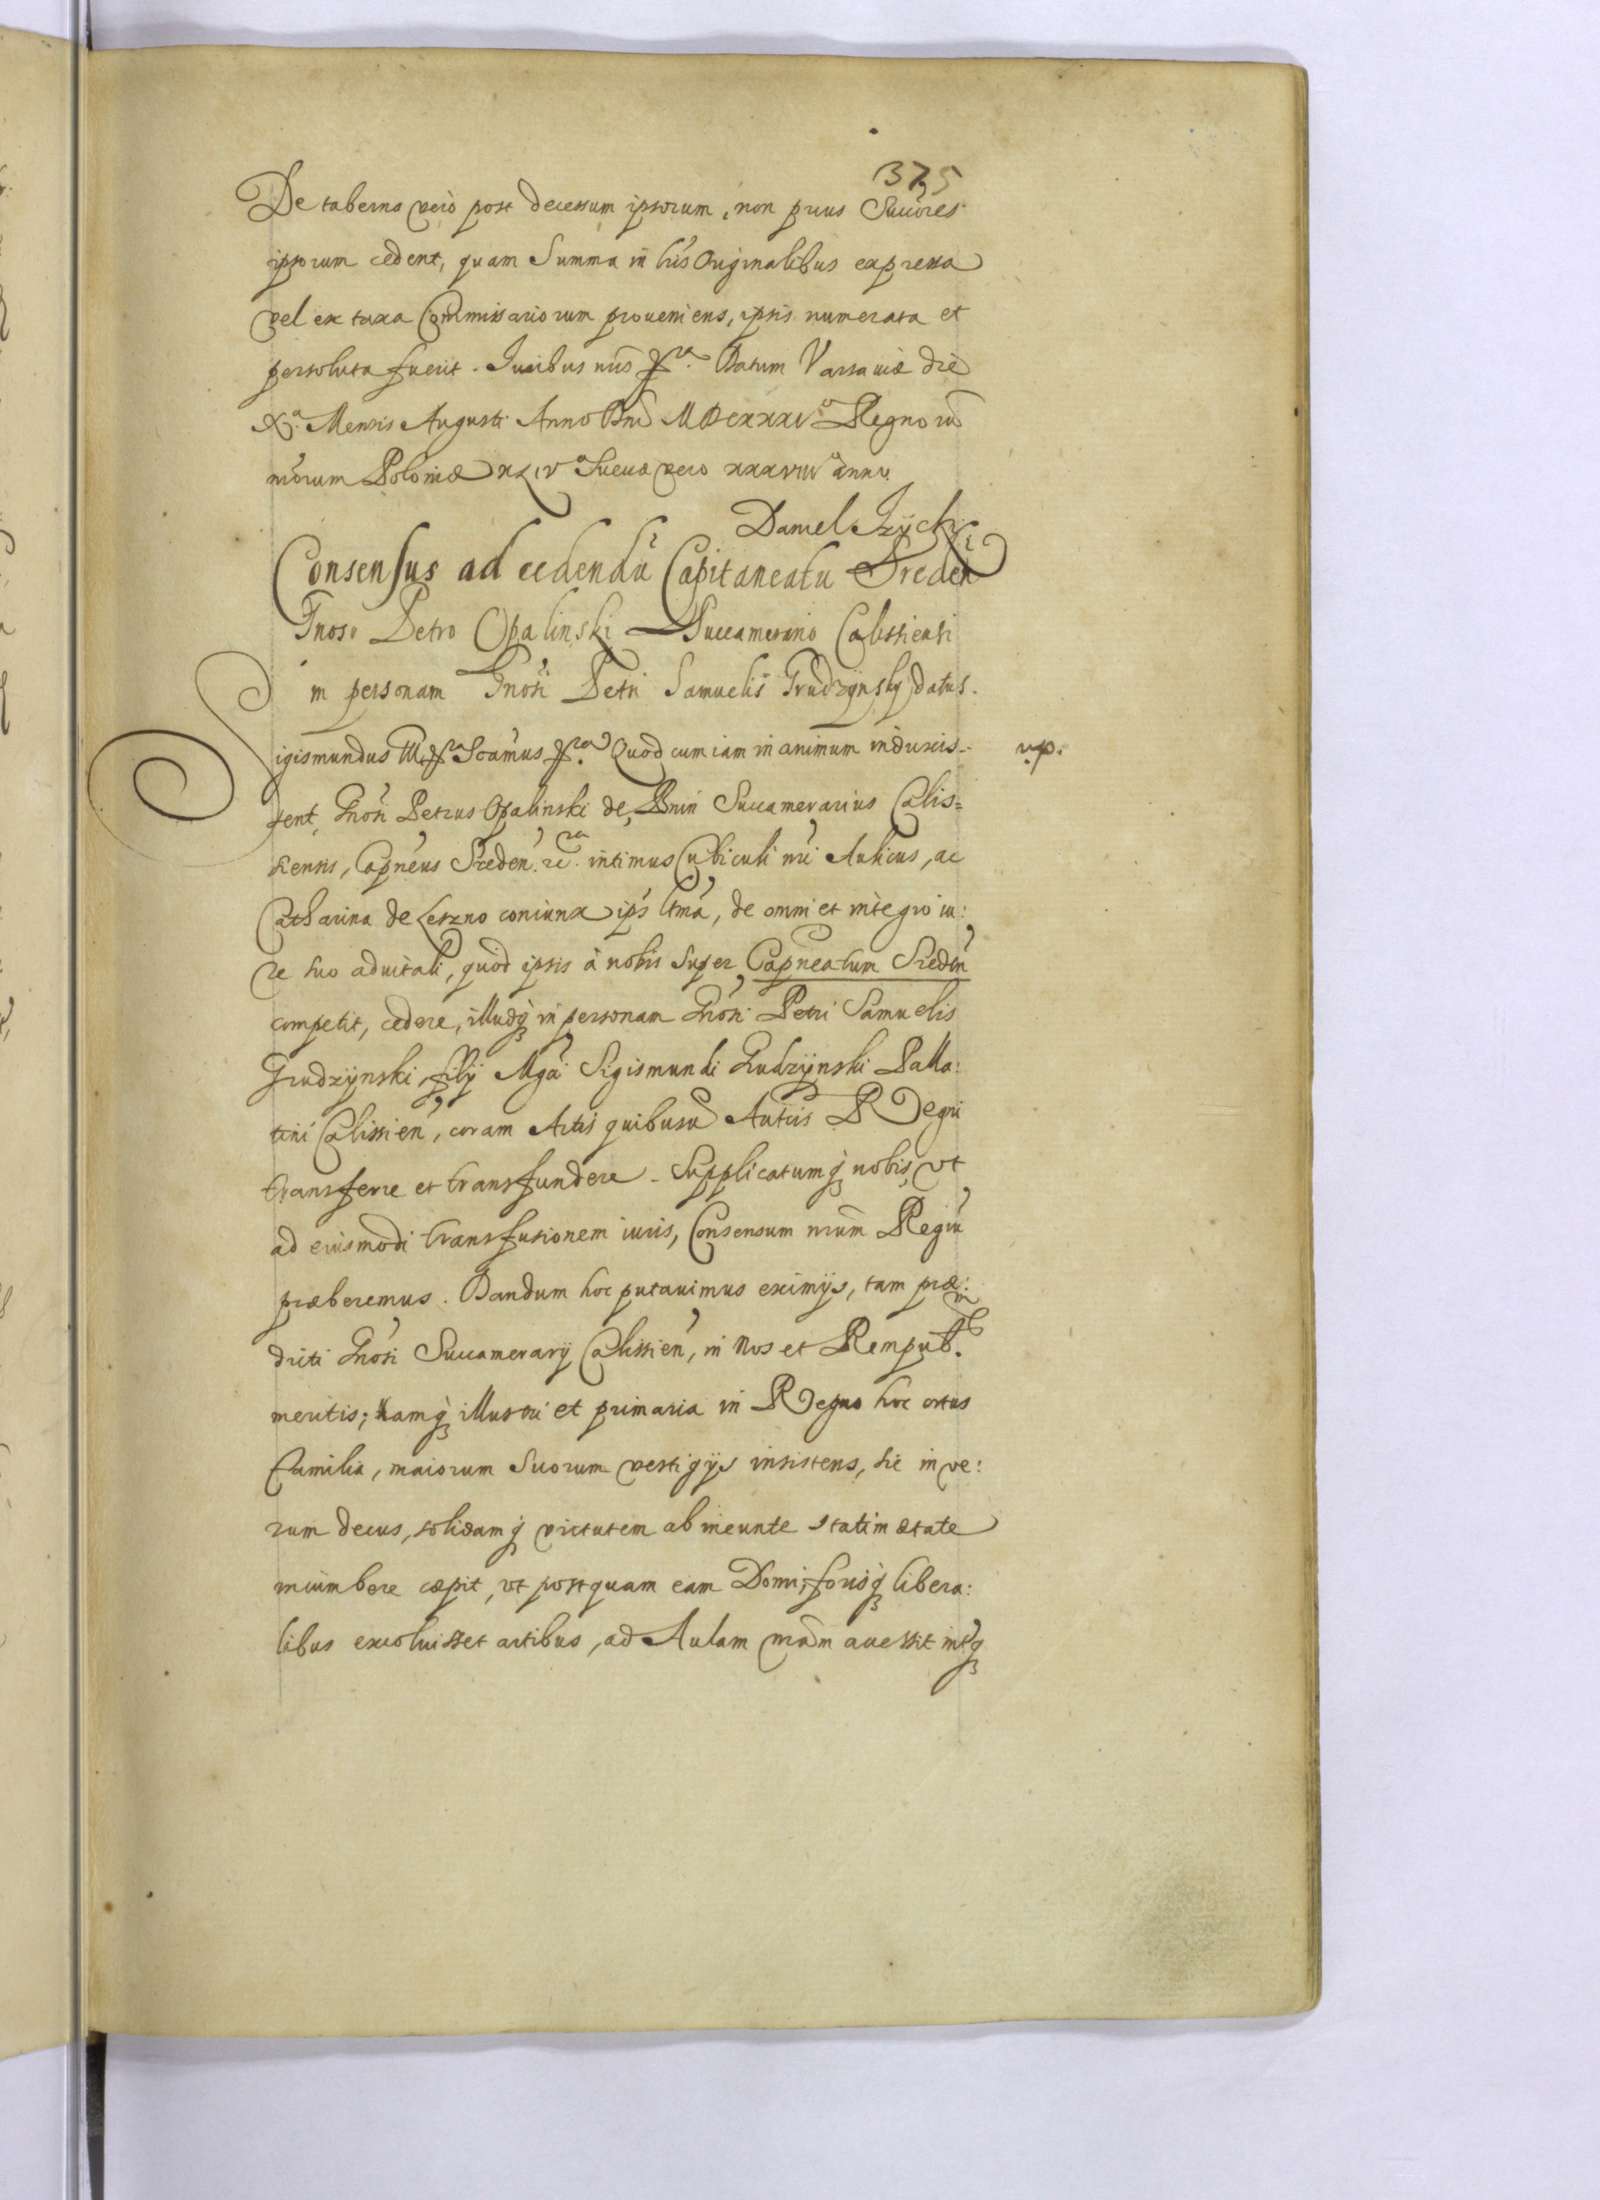 375
De taberna verò post decessum ipsorum, non prius Succ̃ores
ipsorum cedent, quam Summa in lr̃is Originalibus expressa
vel ex taxa Com̃missariorum proueniens, ipsis numerata et
persoluta fuerit. Iuribus nr̃is Datum Varsauiæ die
Xa. Mensis Augusti Anno Dnĩ MDCXXXIo Regnorũ
nr̃orum Poloniæ XLIVo Sueciæ vero XXXVIII anno
Daniel
Consensus ad cedendũ Capitaneatu Sreden̄
Gnoso Petro Opalinski Succamerario Calissiensi
in personam Gnosi Petri Samuelis Grudzÿnsky datus.
Sigismundus III Quod cum iam in animum induxis- v.p.
sent, Gnosi Petrus Opalinski de Bnin Succamerarius Calis=
siensis, Capneus Sreden. intimus Cubiculi nr̃i Aulicus, ac
Catharina de Leszno coniunx ips̃ ltma, de omni et integro iu:
re suo aduitali, quod ipsis à nobis super Capneatum Sreden̄
competit, cedere, illudq; in personam Gnosi Petri Samuelis
Grudzÿnski, filÿ Mg̃ci Sigismundi Grudzÿnski Palla:
tini Calissien̄, coram Actis quibusuis Auticis Regni
transferre et transfundere. Supplicatumq; nobis, vt
ad eiusmodi transfusionem iuris, Consensum nr̃um Regiũ
præberemus. Dandum hoc putauimus eximÿs, tam præ:
dicti Gnosi Succamerarÿ Calissien̄, in Nos et Rempub.
meritis; namq; illustri et primaria in Regno hoc ortus
Familia, maiorum suorum vestigÿs insistens, sic in ve:
rum decus, solidamq; virtutem ab ineunte statim ætate
incumbere cœpit, vt postquam eam Domi, forisq; libera:
libus excoluisset artibus, ad Aulam nr̃am accessit intq;